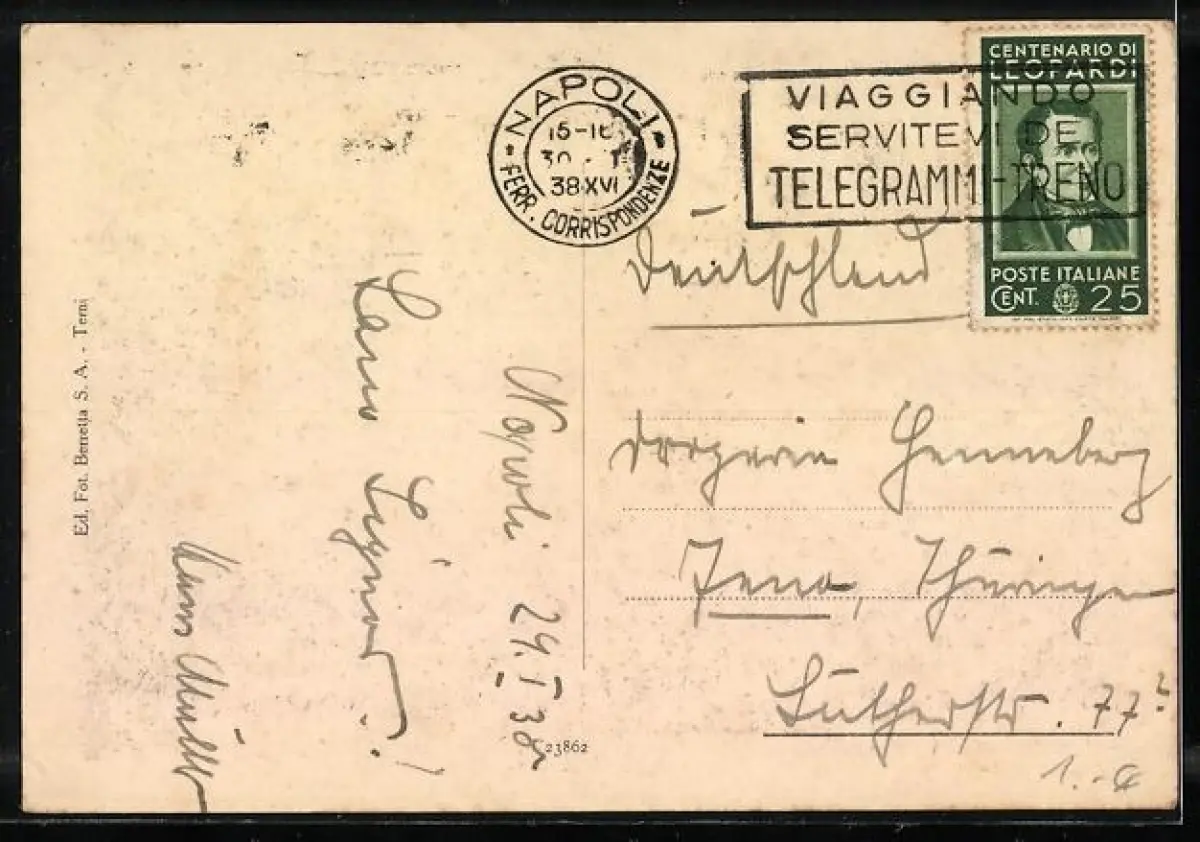 NAPOLI
15-16
30
38 XVI
FERR. CORRISPONDENZE
VIAGGIANDO
SERVITEVI DEI
TELEGRAMMI-TRENO
CENTENARIO DI
LEOPARDI
POSTE ITALIANE
CENT. 25
Deutschland
Henneberg
Jena, Thüringen
Lutherstr. 77
1.-
Napoli 29. I 38
Caro Signor!
Hans Müller
Ed. Fot. Berretta S. A. - Terni
23862